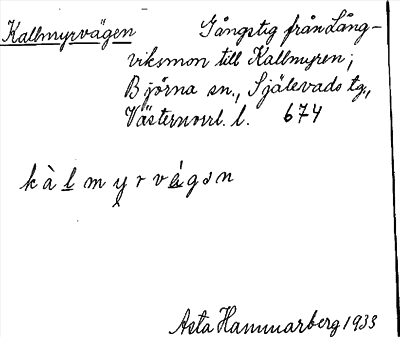 Kallmyrvägen Gångstig från Lång-
viksmon till Kallmyren;
Björna sn., Själevads tg.,
Västernorrl. l. 674
kàlmyrvágən
Asta Hammarberg 1933